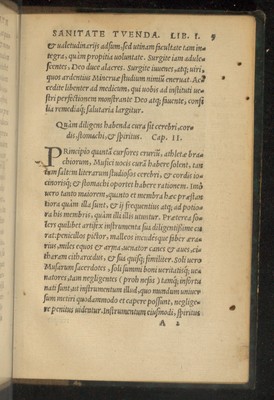 SANITATE TVENDA. LIB. I. 9
& ualetudinarijs adsum. sed utinam facultate tam in-
tegra, quim propitia uoluntate. Surgite iam adule-
scentes, Deo duce alacres. Surgite iuuenes, atq; uiri,
quos ardentius Mineruæ studium nimiũ eneruat. Ac-
cedite libenter ad medicum, qui uobis ad instituti ue-
stri perfectionem monstrante Deo atq; fiuente, consi-
lia remediaq; salutaria largitur.
Quàm diligens habenda cura sit cerebri, cor-
dis, stomachi, & spiritus. Cap. II.
PRincipio quantã cursores crurum, athletæ bra-
chiorum, Musici uocis curã habere solent, tan
tum saltem literarum studiosos cerebri, & cordis io
cinorisq; & stomachi oportet habere rationem. Imò
uero tanto maiorem, quanto et membra hæc præstan
tiora quàm illa sunt, & ij frequentius atq; ad potio-
ra his membris, quàm illi illis utuntur. Præterea so-
lers quilibet artifex instrumenta sua diligentissime cu
rat: penicillos pictor, malleos incudesque faber æra-
rius, miles equos & arma, uenator canes & aues, ci-
tharam citharœdus, & sua quisq; similiter. Soli uero
Musarum sacerdotes, soli summi boni ueritatisq; ue-
natores, tam negligentes (proh nefas) tamq; infortu
nati sunt, ut instrumentum illud, quo mundum uniuer
sum metiri quodammodo et capere possunt, neglige-
re penitus uideantur. Instrumentum eiusmodi, spiritus
A 2